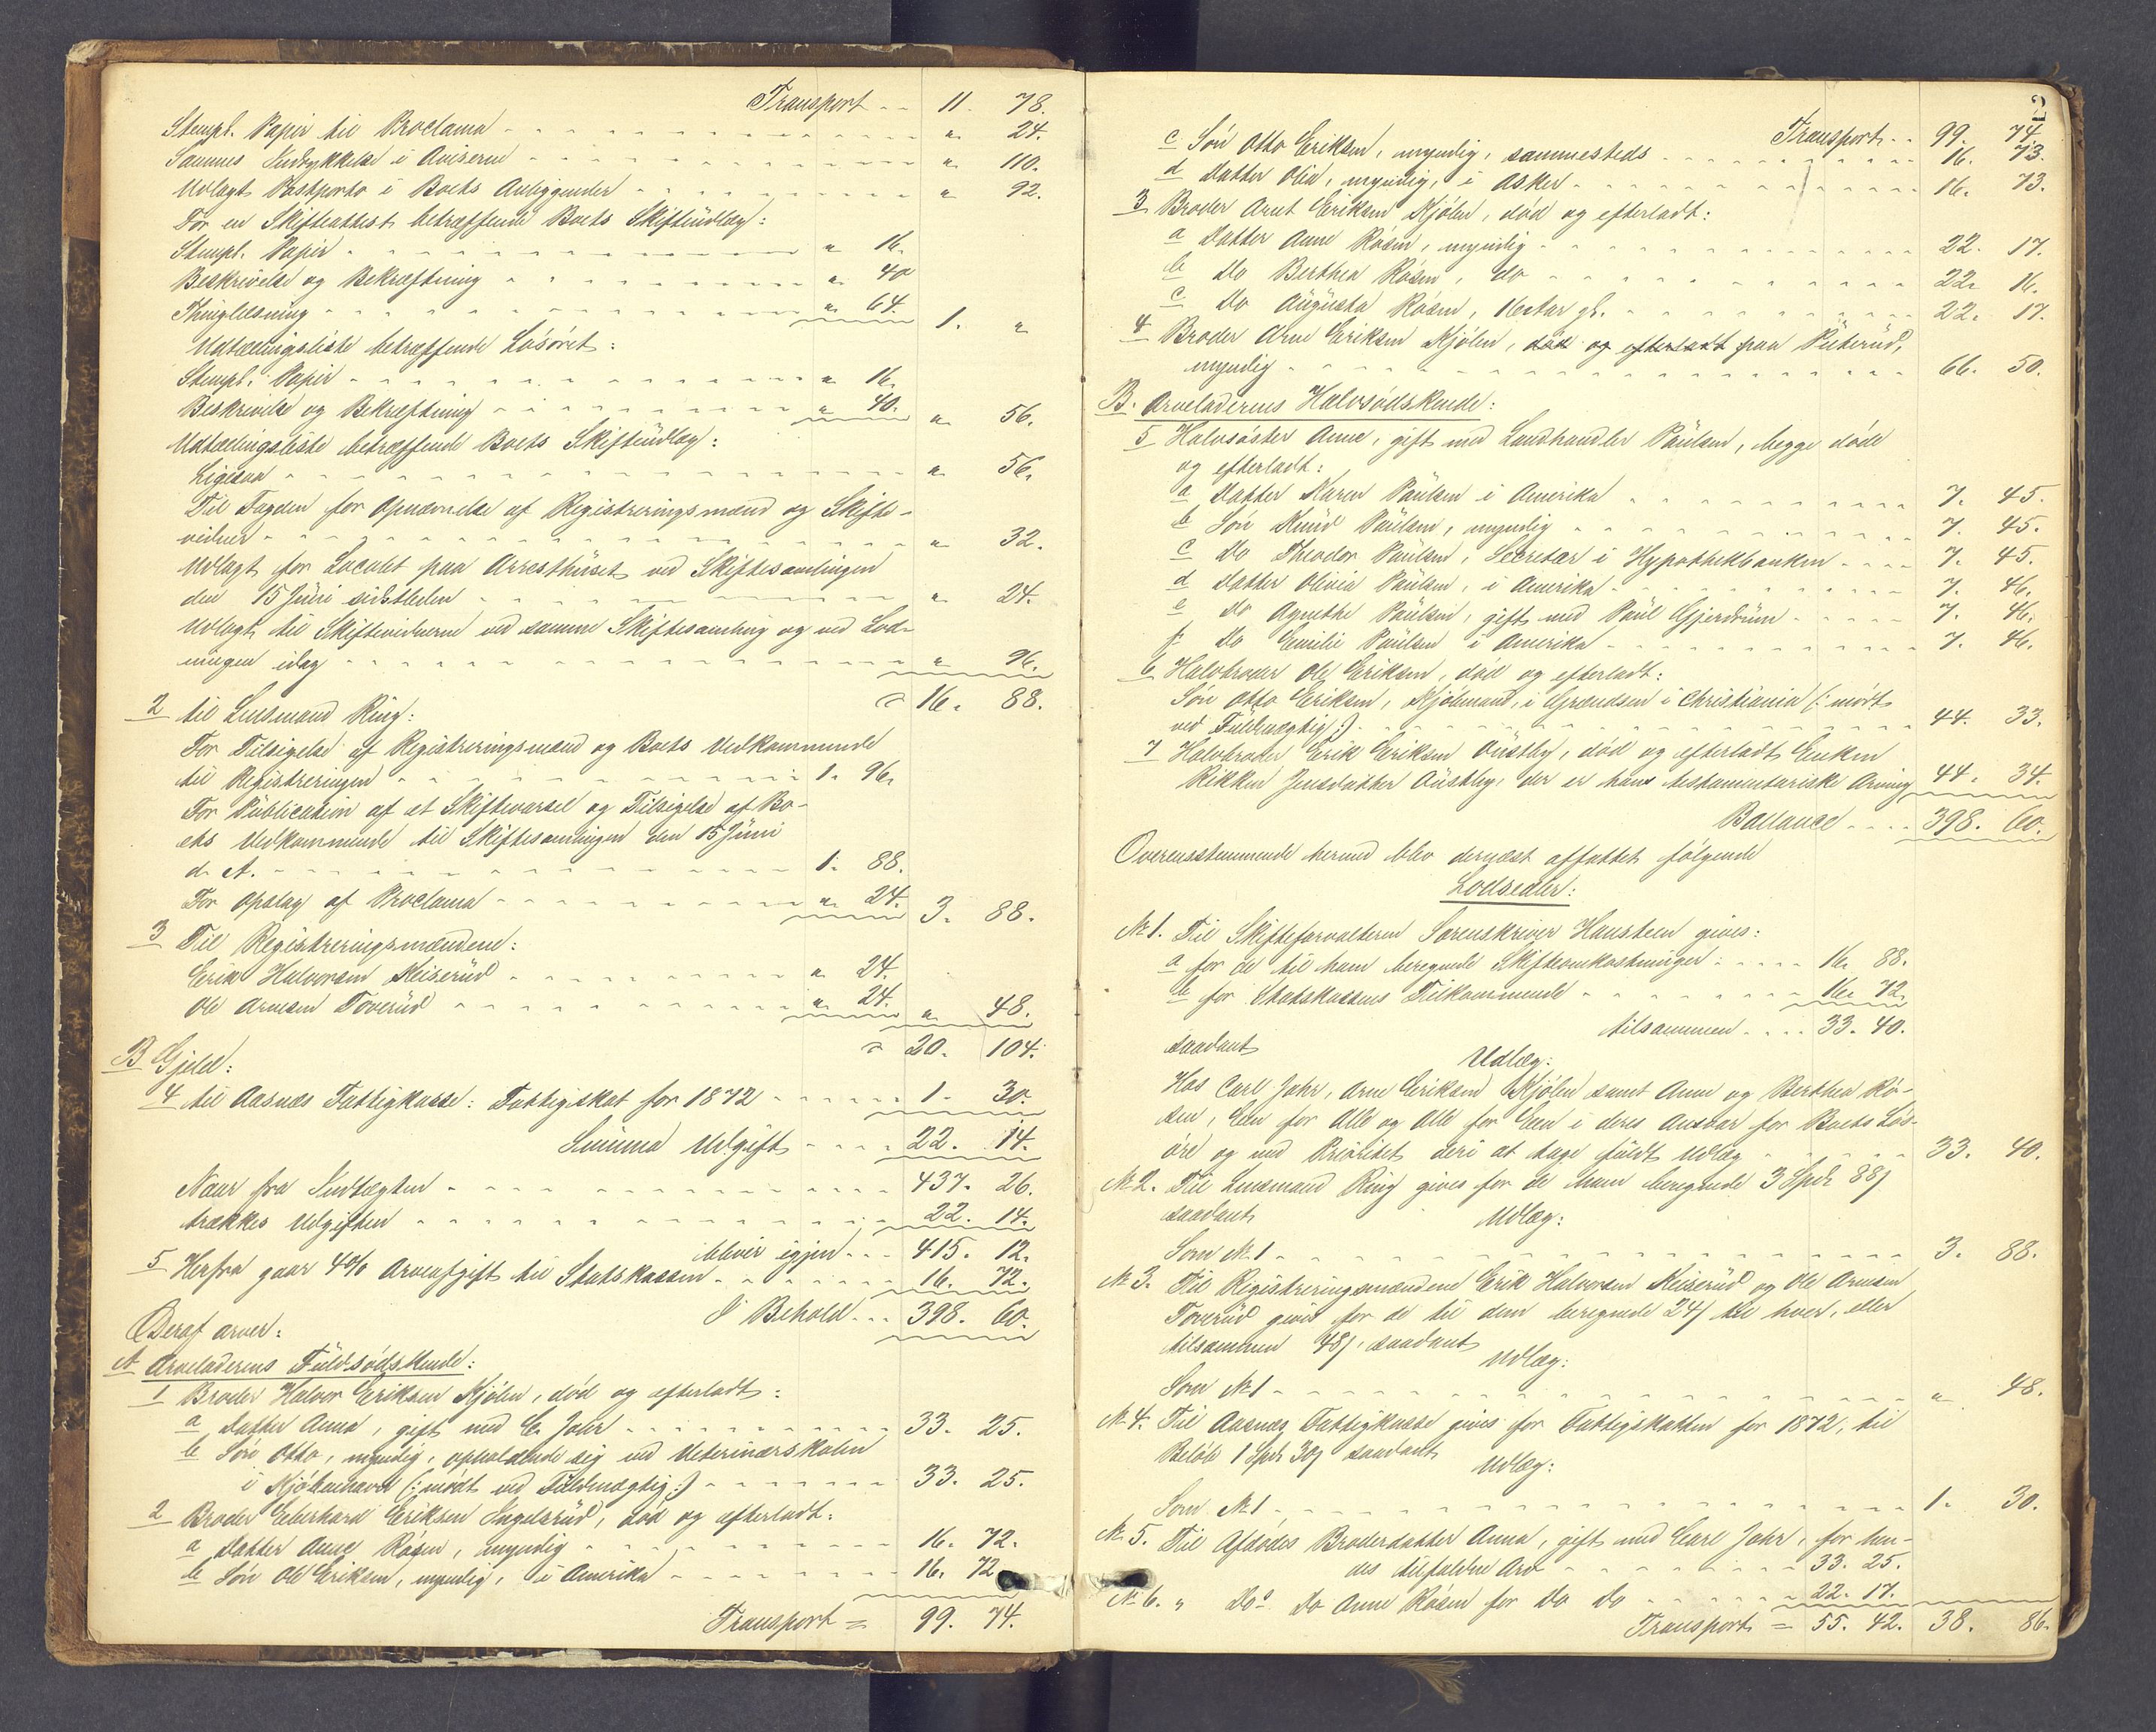 Transport - - 11. 78.
Stempl. Papir til Proclama - - - " 24.
Sammes Indrykkelse i Aviserne - - - " 110.
Udlagt Postporto i Boets Anliggender - - - " 92.
For en Skifteattest betræffende Boets Skifteudlæg:
Stempl. Papir - - - " 16.
Beskrivelse og Bekræftning - - - " 40
Thinglæsning - - - " 64. 1. "
Udtællingsliste betræffende Løsøret:
Stempl. Papir - - - " 16.
Beskrivelse og Bekræftning - - - " 40. " 56.
Udtællingsliste betræffende Boets Skifteudlæg:
Ligesaa - - - " 56.
Til Fogden for Opnævnelse af Registreringsmænd og Skifte-
vidner - - - " 32.
Udlagt for Localet paa Arresthuset ved Skiftesamlingen
den 15 Juni sidstleden - - - " 24.
Udlagt til Skiftevidnerne ved samme Skiftesamling og ved Lod-
ningen idag - - - " 96.
16. 88.
2 til Lensmand Ring:
For Tilsigelse af Registreringsmænd og Boets Vedkommende
til Registreringen - - - 1. 96.
For Publication af et Skiftevarsel og Tilsigelse af Bo-
ets Vedkommende til Skiftesamlingen den 15 Juni
d. A. - - - 1. 88.
For Opslag af Proclama - - - " 24. 3. 88.
3 Til Registreringsmændene:
Erik Halvorsen Keiserud - - - " 24.
Ole Arnesen Toverud - - - " 24. " 48.
20. 104.
B Gjeld:
4 til Aasnæs Fattigkasse: Fattigskat for 1872 - - - 1. 30.
Summa Udgift - - - 22. 14.
Naar fra Indtægten - - - 437. 26.
trækkes Udgiften - - - 22. 14.
bliver igjen - - - 415. 12.
5 Herfra gaar 4% Arveafgift til Statskassen - - - 16. 72.
I Behold - - - 398. 60.
Deraf arver:
A Arveladerens Fuldsødskende:
1 Broder Halvor Eriksen Kjølen, død og efterladt:
a Datter Anna, gift med C. Jahr - - - 33. 25.
b Søn Otto, myndig, opholdende sig ved Veterinærskolen
i Kjøbenhavn (: mødt ved Fuldmægtig :) - - - 33. 25.
2 Broder Eberhard Eriksen Ingelsrud, død og efterladt:
a Datter Anne Røsen, myndig - - - 16. 72.
b Søn Ole Eriksen, myndig, i Amerika - - - 16. 72
Transport = 99. 74.
2
Transport - - 99. 74.
c Søn Otto Eriksen, myndig, sammesteds - - - 16. 73.
d Datter Olia, myndig, i Asker - - - 16. 73.
3 Broder Arnt Eriksen Kjølen, død og efterladt:
a Datter Anne Røsen, myndig - - - 22. 17.
b Do Berthea Røsen, do - - - 22. 16.
c Do Augusta Røsen, 16 Aar gl. - - - 22. 17.
4 Broder Arne Eriksen Kjølen, død og efterladt paa Puterud,
myndig - - - 66. 50.
B. Arveladerens Halvsødskende:
5 Halvsøster Anne, gift med Landhandler Paulsen, begge døde
og efterladt:
a Datter Karen Paulsen i Amerika - - - 7. 45.
b Søn Knud Paulsen, myndig - - - 7. 45.
c Do Theodor Paulsen, Secretær i Hypothekbanken - - - 7. 45.
d Datter Olivia Paulsen, i Amerika - - - 7. 46.
e Do Agnethe Paulsen, gift med Paul Gjerdrum - - - 7. 46.
f Do Emilie Paulsen i Amerika - - - 7. 46.
6 Halvbroder Ole Eriksen, død og efterladt:
Søn Otto Eriksen, Kjøbmand, i Grændsen i Christiania (: mødt
ved Fuldmægtig :) - - - 44. 33.
7 Halvbroder Erik Eriksen Austby, død og efterladt Enken
Rikken Jensdatter Austby, der er hans testamentariske Arving 44. 34.
Ballance - - - 398. 60.
Overensstemmende hermed blev dernæst affattet følgende
Lodsedler:
No 1. Til Skifteforvalteren Sorenskriver Hansteen gives:
a for de til ham beregnede Skifteomkostninger - - - 16. 88.
b for Statskassens Tilkommende - - - 16. 72.
tilsammen - - - 33. 40.
saadant
Udlæg:
Hos Carl Jahr, Arne Eriksen Kjølen samt Anne og Berthea Rø-
sen, Een for Alle og Alle for Een i deres Ansvar for Boets Løs-
øre og med Prioritet deri at tage fuldt Udlæg - - - 33. 40.
No 2. Til Lensmand Ring gives for de ham beregnede 3 Spd. 88 ß
saadant Udlæg:
Som No 1 - - - 3. 88.
No 3. Til Registreringsmændene Erik Halvorsen Keiserud og Ole Arnesen
Toverud gives for de til dem beregnede 24 ß til hver, eller
tilsammen 48 ß, saadant
Udlæg:
Som No 1 - - - " 48.
No 4. Til Aasnæs Fattigkasse gives for Fattigskatten for 1872, til
Beløb 1 Spd. 30 ß saadant
Udlæg:
Som No 1 - - - 1. 30.
No 5. Til Afdødes Broderdatter Anna, gift med Carl Jahr, for hen-
des tilfaldne Arv - - - 33. 25.
No 6. " Do Do Anne Røsen for Do Do - - - 22. 17.
Transport = 55. 42. 38. 86.